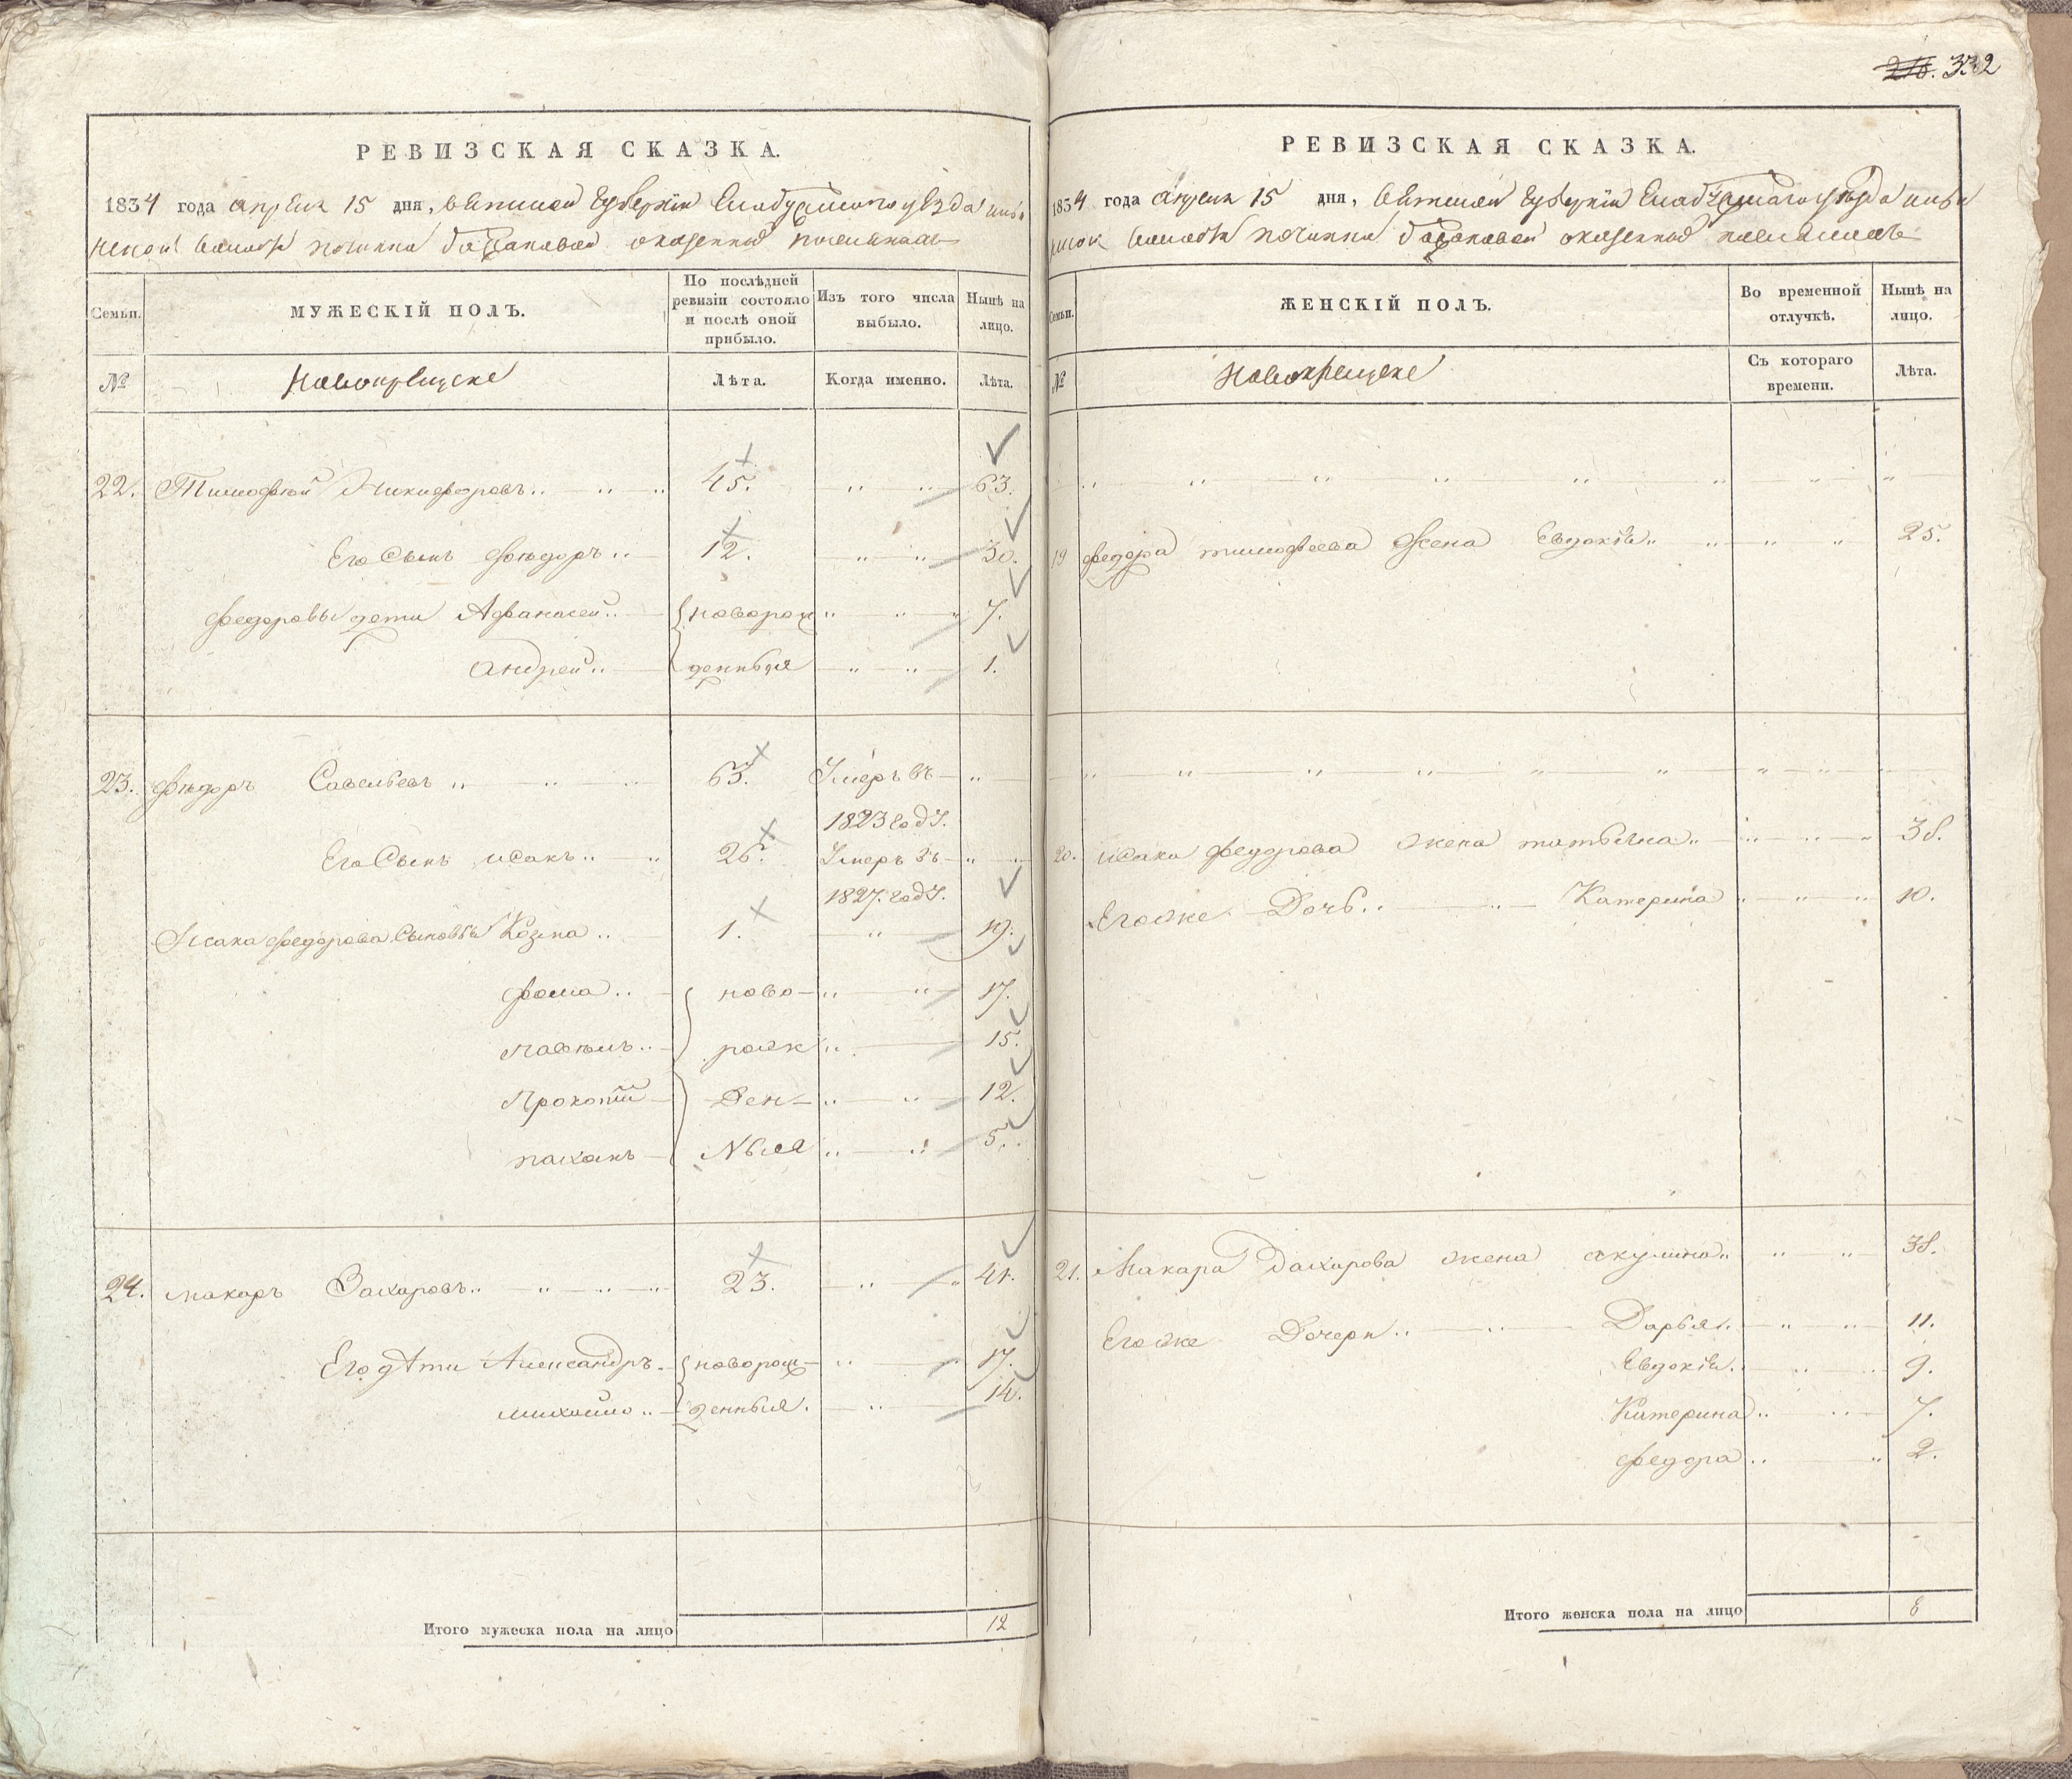 332
РЕВИЗСКАЯ СКАЗКА.
1834 года апреля 15 дня, вятской губернии Елабужского уезда
волости починка оказенных поселянахъ
Семьи.
МУЖЕСКІЙ ПОЛЪ.
По послѣдней ревизіи состояло и послѣ оной прибыло.
Изъ того числа выбыло.
Нынѣ на лицо.
№
Новокрещене
Лѣта.
Когда именно.
Лѣта.
22. Тимофей Никифоровъ 45. 63.
Его Сынъ Фѣдоръ 12. 30.
Федоровы дети Афанасей новорож 7.
Андрей денныя 1.
23. Фѣдоръ Савельевъ 63. Умеръ въ
1823 году.
Его Сынъ исакъ 26. Умеръ въ
1827. году.
Исака Федорова Сыновья Козма 1. 19.
Фома ново 17.
рожж 15.
Прокопий ден 12.
ныя 5.
24. макаръ Захаровъ 23. 41.
Его дѣти Александръ новорож 17.
михайло денныя. 14.
Итого мужеска пола на лицо 12
РЕВИЗСКАЯ СКАЗКА.
1834 года апреля 15 дня, вятской губернии Елабужскаго уѣзда
волости починка оказенных поселянахъ
Семьи.
ЖЕНСКІЙ ПОЛЪ.
Во временной отлучкѣ.
Нынѣ на лицо.
№
Новокрещене
Съ котораго времени.
Лѣта.
19 федора тимофеева жена Евдокия 25.
20. исака федорова жена татьяна 38.
Егоже Дочь Катерина 10.
21. Макара Захарова жена акулина 38.
Егоже Дочери Дарья 11.
Евдокия 9.
Катерина 7.
федора 2.
Итого женска пола на лицо 8